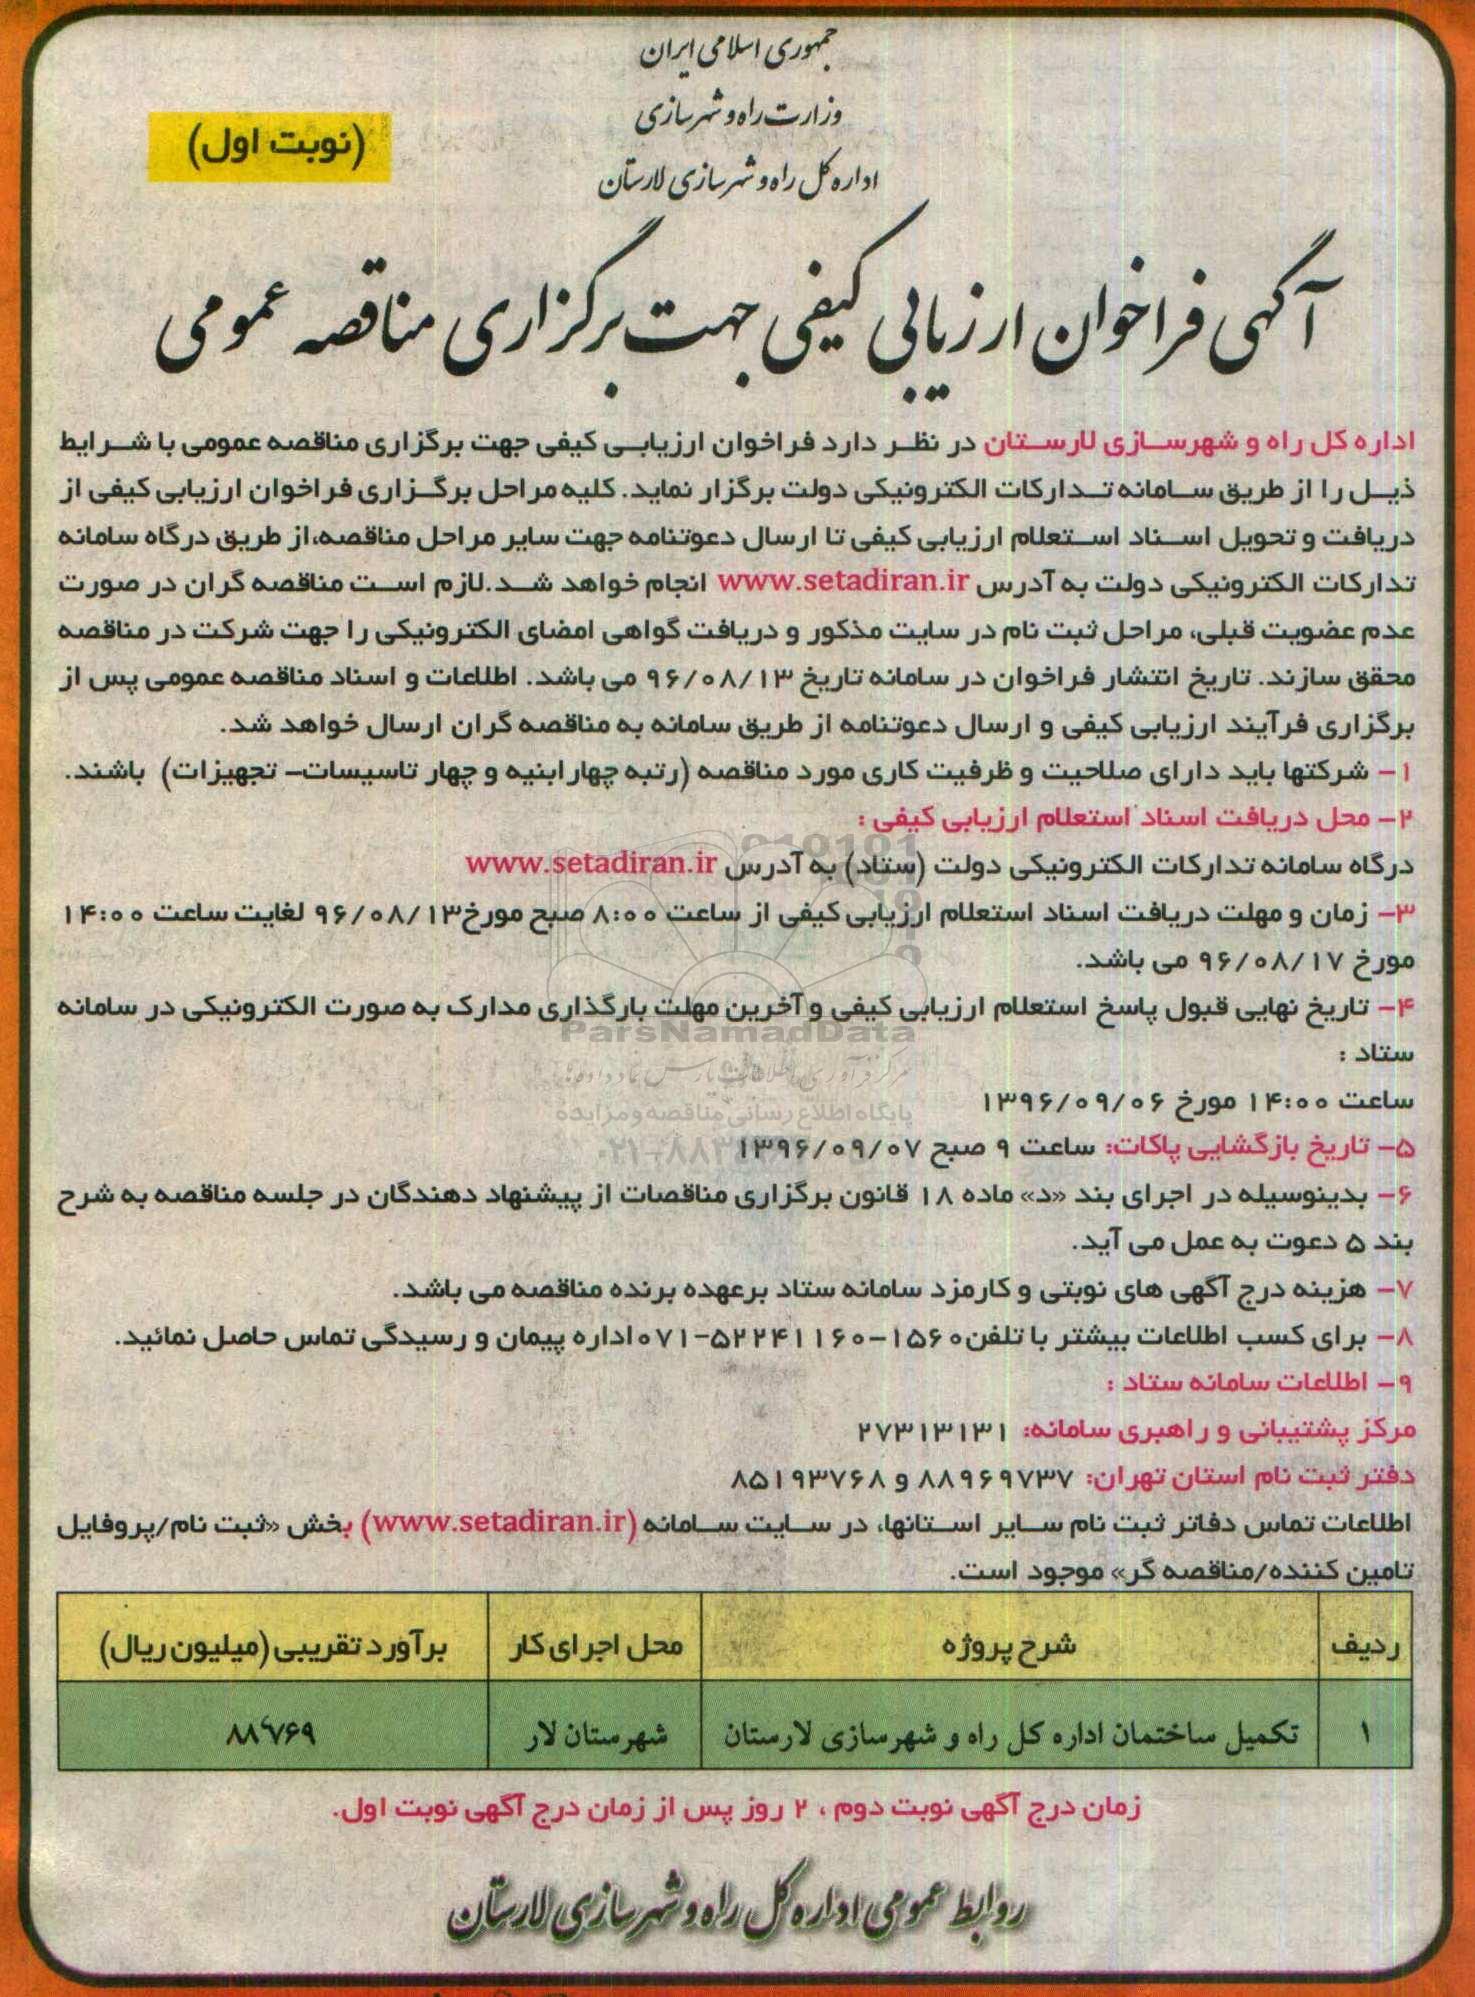 جمهوری اسلامی ایران
وزارت راه و شهرسازی
اداره کل راه و شهرسازی لارستان
(نوبت اول)
آگهی فراخوان ارزیابی کیفی جهت برگزاری مناقصه عمومی
اداره کل راه و شهرسازی لارستان در نظر دارد فراخوان ارزیابی کیفی جهت برگزاری مناقصه عمومی با شرایط
ذیل را از طریق سامانه تدارکات الکترونیکی دولت برگزار نماید. کلیه مراحل برگزاری فراخوان ارزیابی کیفی از
دریافت و تحویل اسناد استعلام ارزیابی کیفی تا ارسال دعوتنامه جهت سایر مراحل مناقصه،از طریق درگاه سامانه
تدارکات الکترونیکی دولت به آدرس www.setadiran.ir انجام خواهد شد.لازم است مناقصه گران در صورت
عدم عضویت قبلی، مراحل ثبت نام در سایت مذکور و دریافت گواهی امضای الکترونیکی را جهت شرکت در مناقصه
محقق سازند. تاریخ انتشار فراخوان در سامانه تاریخ ۹۶/۰۸/۱۳ می باشد. اطلاعات و اسناد مناقصه عمومی پس از
برگزاری فرآیند ارزیابی کیفی و ارسال دعوتنامه از طریق سامانه به مناقصه گران ارسال خواهد شد.
۱- شرکتها باید دارای صلاحیت و ظرفیت کاری مورد مناقصه (رتبه چهار ابنیه و چهار تاسیسات- تجهیزات) باشند.
۲- محل دریافت اسناد استعلام ارزیابی کیفی :
درگاه سامانه تدارکات الکترونیکی دولت (ستاد) به آدرس www.setadiran.ir
۳- زمان و مهلت دریافت اسناد استعلام ارزیابی کیفی از ساعت ۸:۰۰ صبح مورخ۹۶/۰۸/۱۳ لغایت ساعت ۱۴:۰۰
مورخ ۹۶/۰۸/۱۷ می باشد.
۴- تاریخ نهایی قبول پاسخ استعلام ارزیابی کیفی و آخرین مهلت بارگذاری مدارک به صورت الکترونیکی در سامانه
ستاد :
ParsNamadData
ساعت ۱۴:۰۰ مورخ ۱۳۹۶/۰۹/۰۶
پایگاه اطلاع رسانی مناقصه و مزایده
۵- تاریخ بازگشایی پاکات: ساعت ۹ صبح ۱۳۹۶/۰۹/۰۷
۶- بدینوسیله در اجرای بند «د» ماده ۱۸ قانون برگزاری مناقصات از پیشنهاد دهندگان در جلسه مناقصه به شرح
بند ۵ دعوت به عمل می آید.
۷- هزینه درج آگهی های نوبتی و کارمزد سامانه ستاد برعهده برنده مناقصه می باشد.
۸- برای کسب اطلاعات بیشتر با تلفن۱۵۶۰-۰۷۱-۵۲۲۴۱۱۶۰اداره پیمان و رسیدگی تماس حاصل نمائید.
۹- اطلاعات سامانه ستاد :
مرکز پشتیبانی و راهبری سامانه: ۲۷۳۱۳۱۳۱
دفتر ثبت نام استان تهران: ۸۸۹۶۹۷۳۷ و ۸۵۱۹۳۷۶۸
اطلاعات تماس دفاتر ثبت نام سایر استانها، در سایت سامانه (www.setadiran.ir) بخش «ثبت نام/پروفایل
تامین کننده/مناقصه گر» موجود است.
ردیف شرح پروژه محل اجرای کار برآورد تقریبی (میلیون ریال)
۱ تکمیل ساختمان اداره کل راه و شهرسازی لارستان شهرستان لار ۸۸٬۷۶۹
زمان درج آگهی نوبت دوم ، ۲ روز پس از زمان درج آگهی نوبت اول.
روابط عمومی اداره کل راه و شهرسازی لارستان